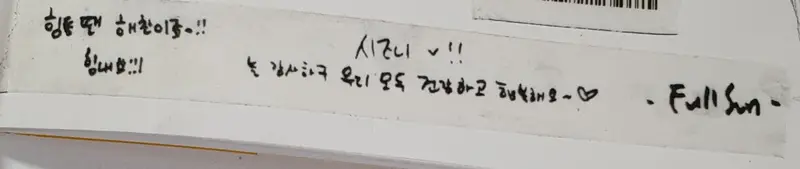 힘들 때 해찬이죠~!!
힘내요!!!
시즈니 ✓!!
늘 감사하구 우리 모두 건강하고 행복해요~♡
- Full Sun -